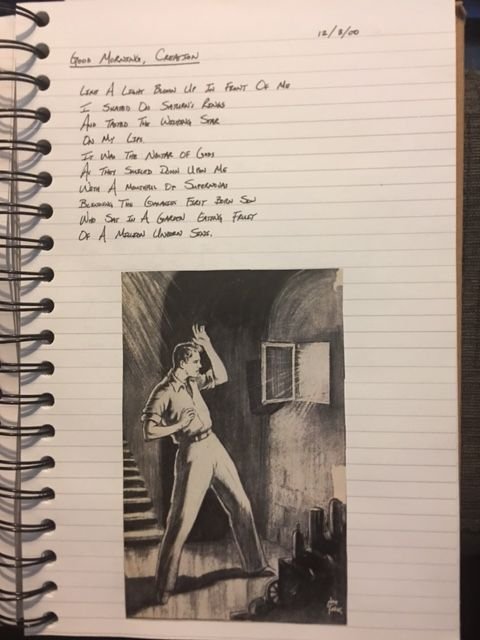 12/8/00
Good Morning, Creation
Like A Light Blown Up In Front Of Me
I Skated On Saturn's Rings
And Tasted The Wedding Star
On My Lips.
It Was The Nectar Of Gods
As They Smiled Down Upon Me
With A Mouthful Of Supernovas
Blending The Galaxies First Born Son
Who Sat In A Garden Eating Fruit
Of A Million Unborn Suns.